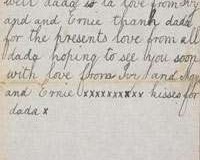 well dada so ta love from Ivy
and and Ernie thank dada
for the presents love from all
dada hoping to see you soon
with love from Ivr and
and Ernie xxxxxxxxxx kisses for
dada x